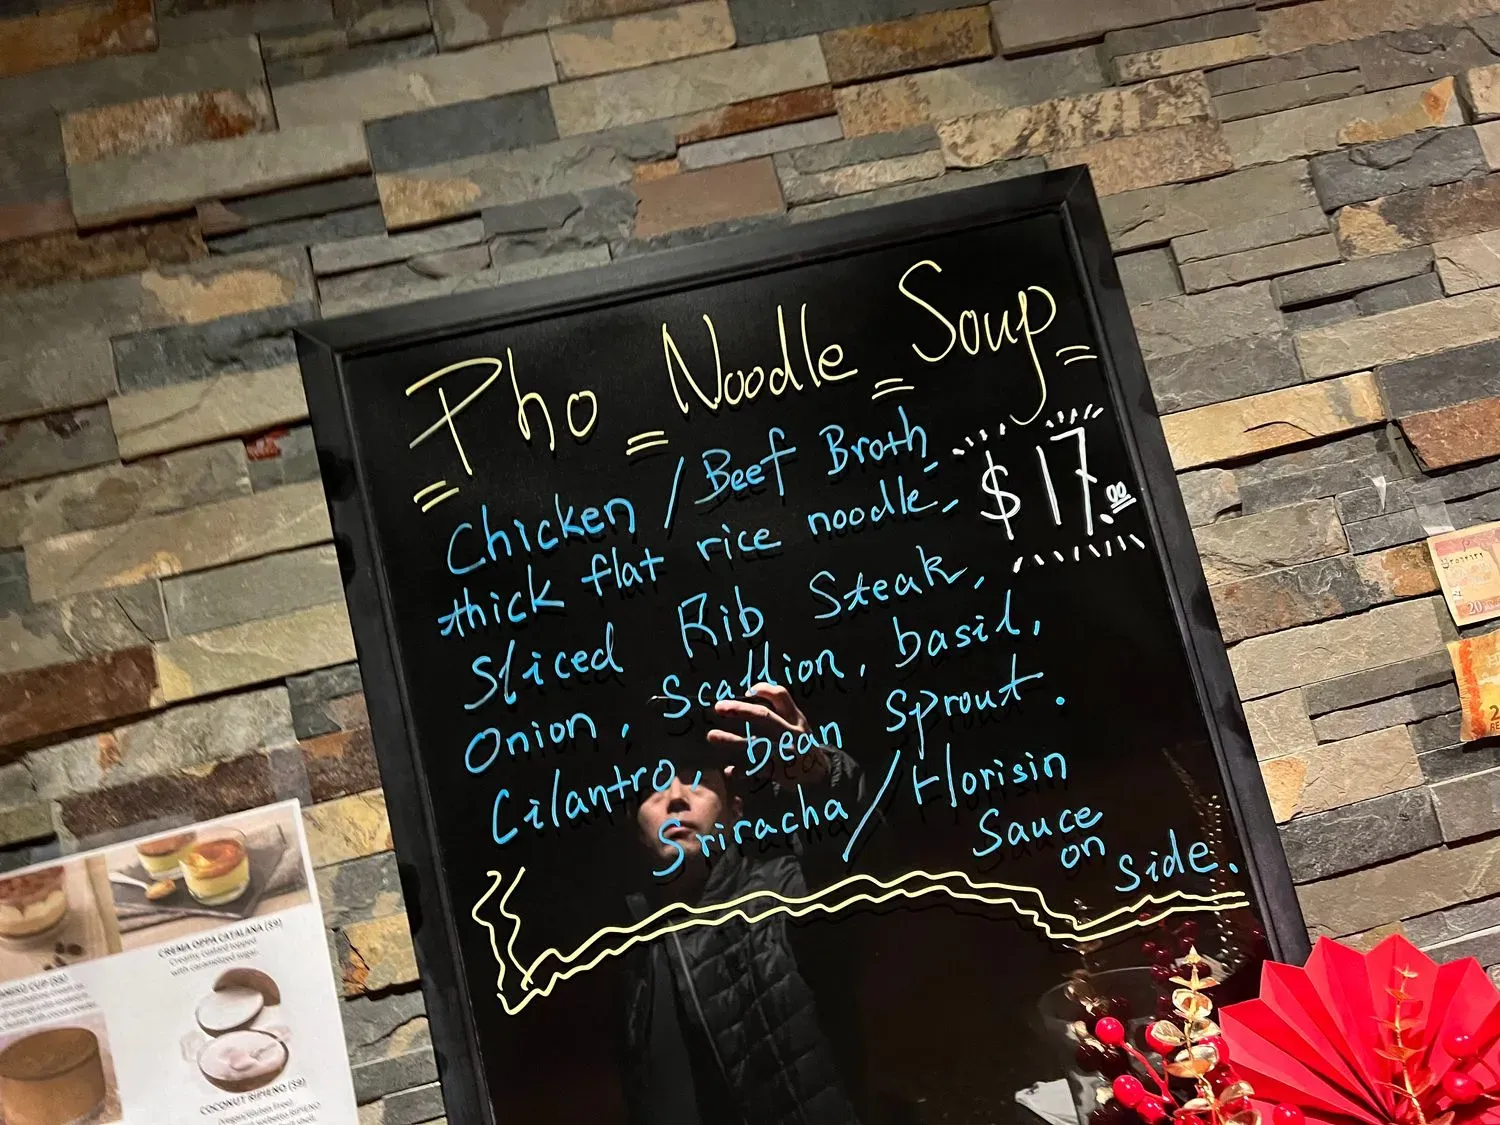 Pho Noodle Soup
Chicken / Beef Broth,
thick flat rice noodle,
$17.00
Sliced Rib Steak,
Onion, Scallion, basil,
Cilantro, bean sprout.
Sriracha / Horisin
Sauce
on
side.
CREMA OPPA CATALANA ($9)
Creamy custard topped
with caramelized sugar.
CUP ($8)
COCONUT RIPIENO ($9)
20